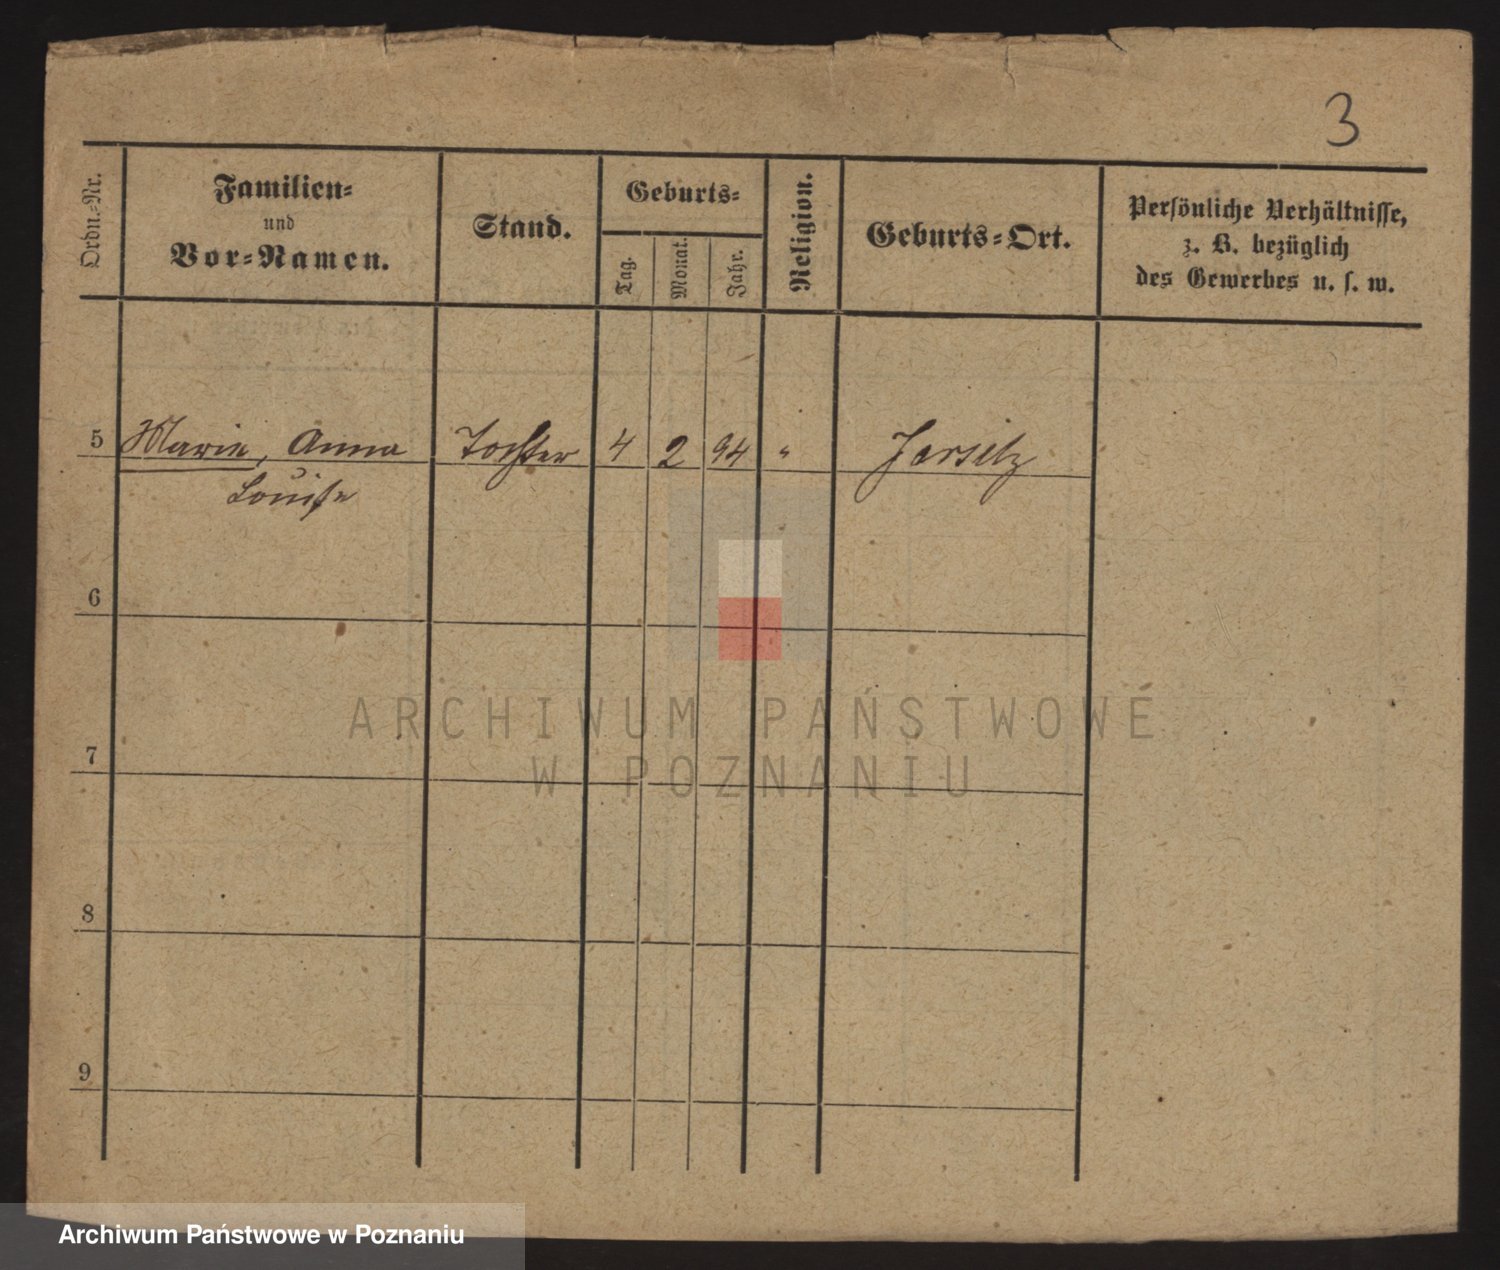 3
Ordn.-Nr.
Familien-
und
Vor-Namen.
Stand.
Geburts-
Tag.
Monat.
Jahr.
Religion.
Geburts-Ort.
Persönliche Verhältnisse,
z. B. bezüglich
des Gewerbes u. s. w.
5 Marie, Anna Tochter 4 2 94 " Jersitz
Louise
6
7
8
9
ARCHIWUM PAŃSTWOWE
W POZNANIU
Archiwum Państwowe w Poznaniu